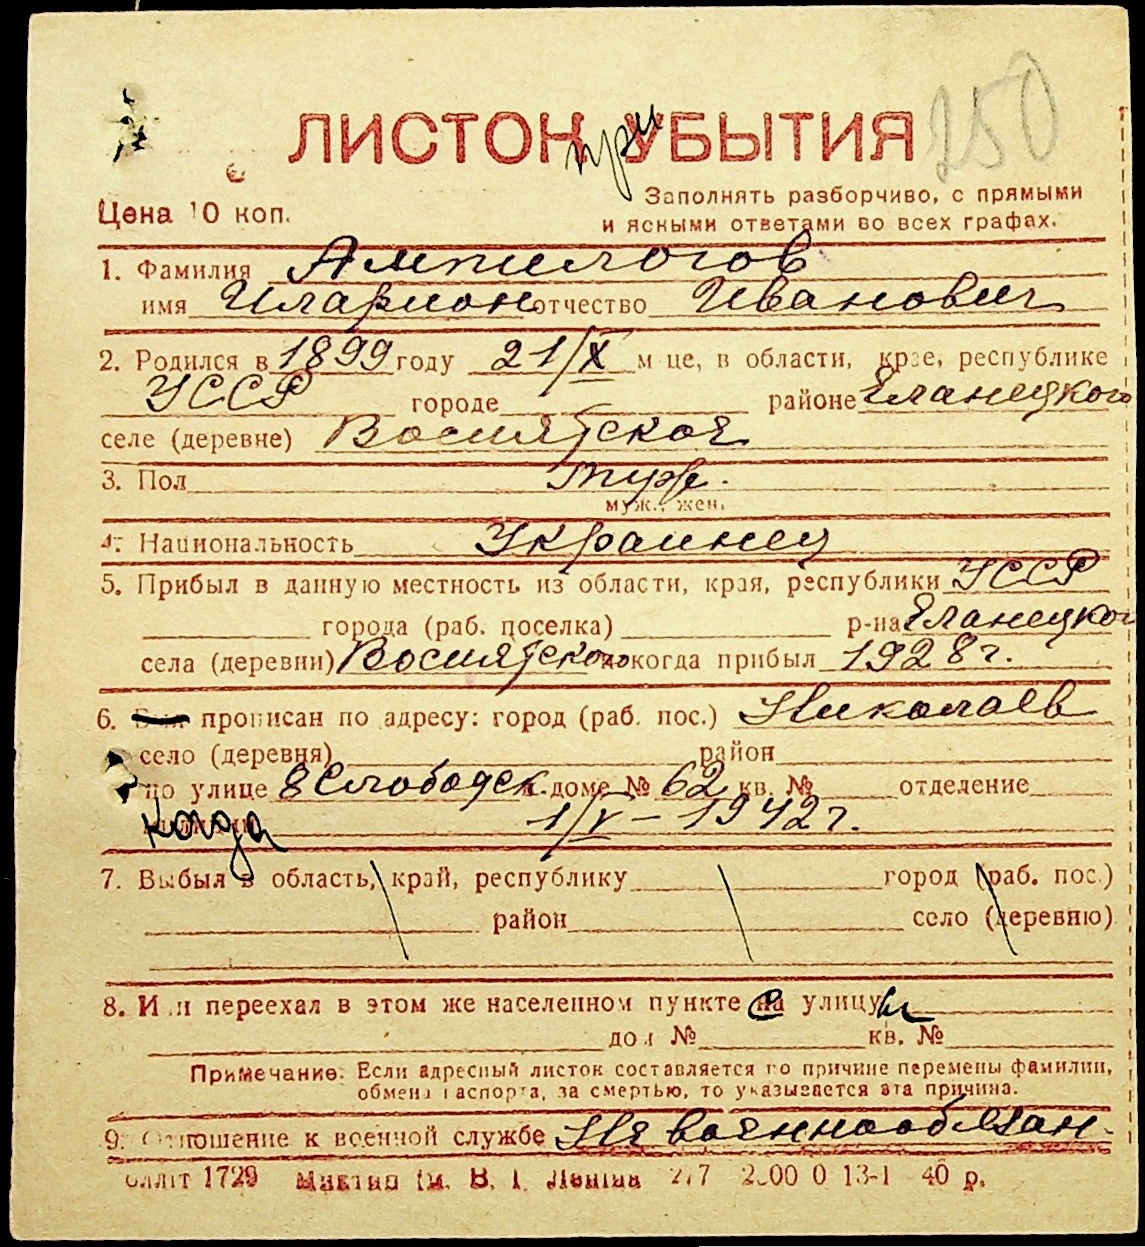 250
ЛИСТОК при УБЫТИЯ
Цена 10 коп.
Заполнять разборчиво, с прямыми
и ясными ответами во всех графах.
1. Фамилия Ампилогов
имя Иларион отчество Иванович
2. Родился в 1899 году 21/X м-це, в области, крае, республике
УССР городе районе Еланецкого
селе (деревне) Восиятское
3. Пол муж.
муж., жен.
4. Национальность Украинец
5. Прибыл в данную местность из области, края, республики УССР
города (раб. поселка) р-на Еланецкого
села (деревни) Восиятского когда прибыл 1928 г.
6. прописан по адресу: город (раб. пос.) Николаев
село (деревня) район
по улице 8 Слободск. доме № 62 кв. № отделение
когда 1/V – 1942 г.
7. Выбыл в область, край, республику город (раб. пос.)
район село (деревню)
8. Или переехал в этом же населенном пункте с улицы
дом № кв. №
Примечание. Если адресный листок составляется по причине перемены фамилии,
обмена паспорта, за смертью, то указывается эта причина.
9. Отношение к военной службе Не военнообязан.
1729 ім. В. І. Леніна 13-1 40 р.